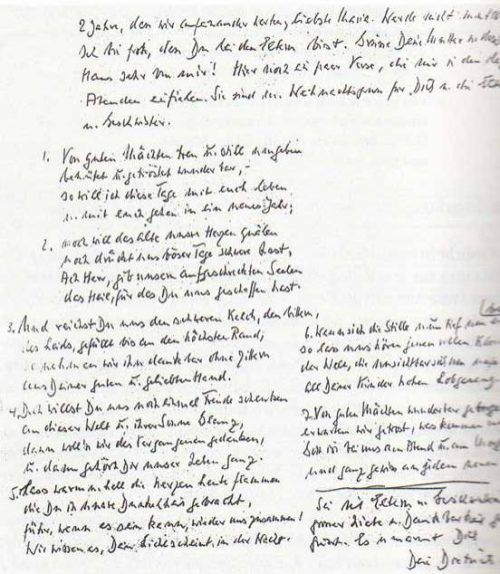 2 Jahre, dass wir aufeinander warten, liebste Maria. Werde nicht
Ich bin froh, dass Du bei den Eltern bist. Grüsse Deine Mutter u. das
Haus sehr von mir! Hier noch ein paar Verse, die mir in den
Abenden einfielen. Sie sind der Weihnachtsgruss für Dich u. die
u. Geschwister.
1. Von guten Mächten treu u. still umgeben
behütet u. getröstet wunderbar, –
so will ich diese Tage mit euch leben
u. mit euch gehen in ein neues Jahr;
2. noch will das alte unsre Herzen quälen
noch drückt uns böser Tage schwere Last,
Ach Herr, gib unsern aufgescheuchten Seelen
das Heil, für das Du uns geschaffen hast.
3. Und reichst Du uns den schweren Kelch, den bittern,
des Leids, gefüllt bis an den höchsten Rand,
so nehmen wir ihn dankbar ohne Zittern
aus Deiner guten u. geliebten Hand.
4. Doch willst Du uns noch einmal Freude schenken
an dieser Welt u. ihrer Sonne Glanz,
dann woll'n wir des Vergangenen gedenken,
u. dann gehört Dir unser Leben ganz.
5. Lass warm u. hell die Kerzen heute flammen
die Du in unsre Dunkelheit gebracht,
führ, wenn es sein kann, wieder uns zusammen!
Wir wissen es, Dein Licht scheint in der Nacht.
6. Wenn sich die Stille nun tief um
so lass uns hören jenen vollen
der Welt, die unsichtbar sich um
all Deiner Kinder hohen Lobgesang
7. Von guten Mächten wunderbar
erwarten wir getrost, was kommen
Gott ist bei uns am Abend u. am
und ganz gewiss an jedem neuen
Sei mit Eltern u. Geschwistern
grosser Liebe u. Dankbarkeit
gegrüsst. Es umarmt Dich
Dein Dietrich